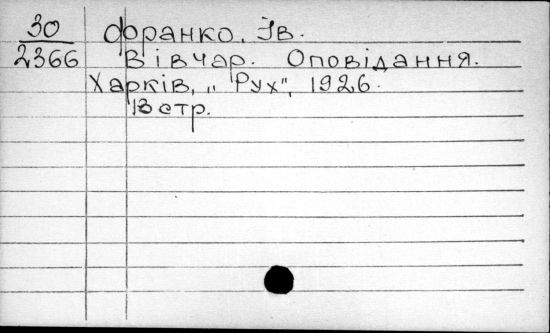 30 Франко, Ів.
2366 Вівчар. Оповідання.
Харків, „Рух", 1926.
13 стр.